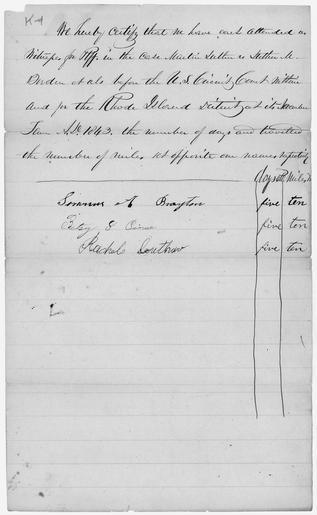 K-1
We hereby certify that we have each attended as
Witness for Plff. in the case Martin Luther vs Luther M.
Borden et als before the U.S. Circuit Court within
and for the Rhode Island District at its November
Term A.D. 1843, the number of days and travelled
the number of miles set opposite our names respectively
days attd Miles
Simmons A Brayton five ten
five ten
Rachel Luther five ten